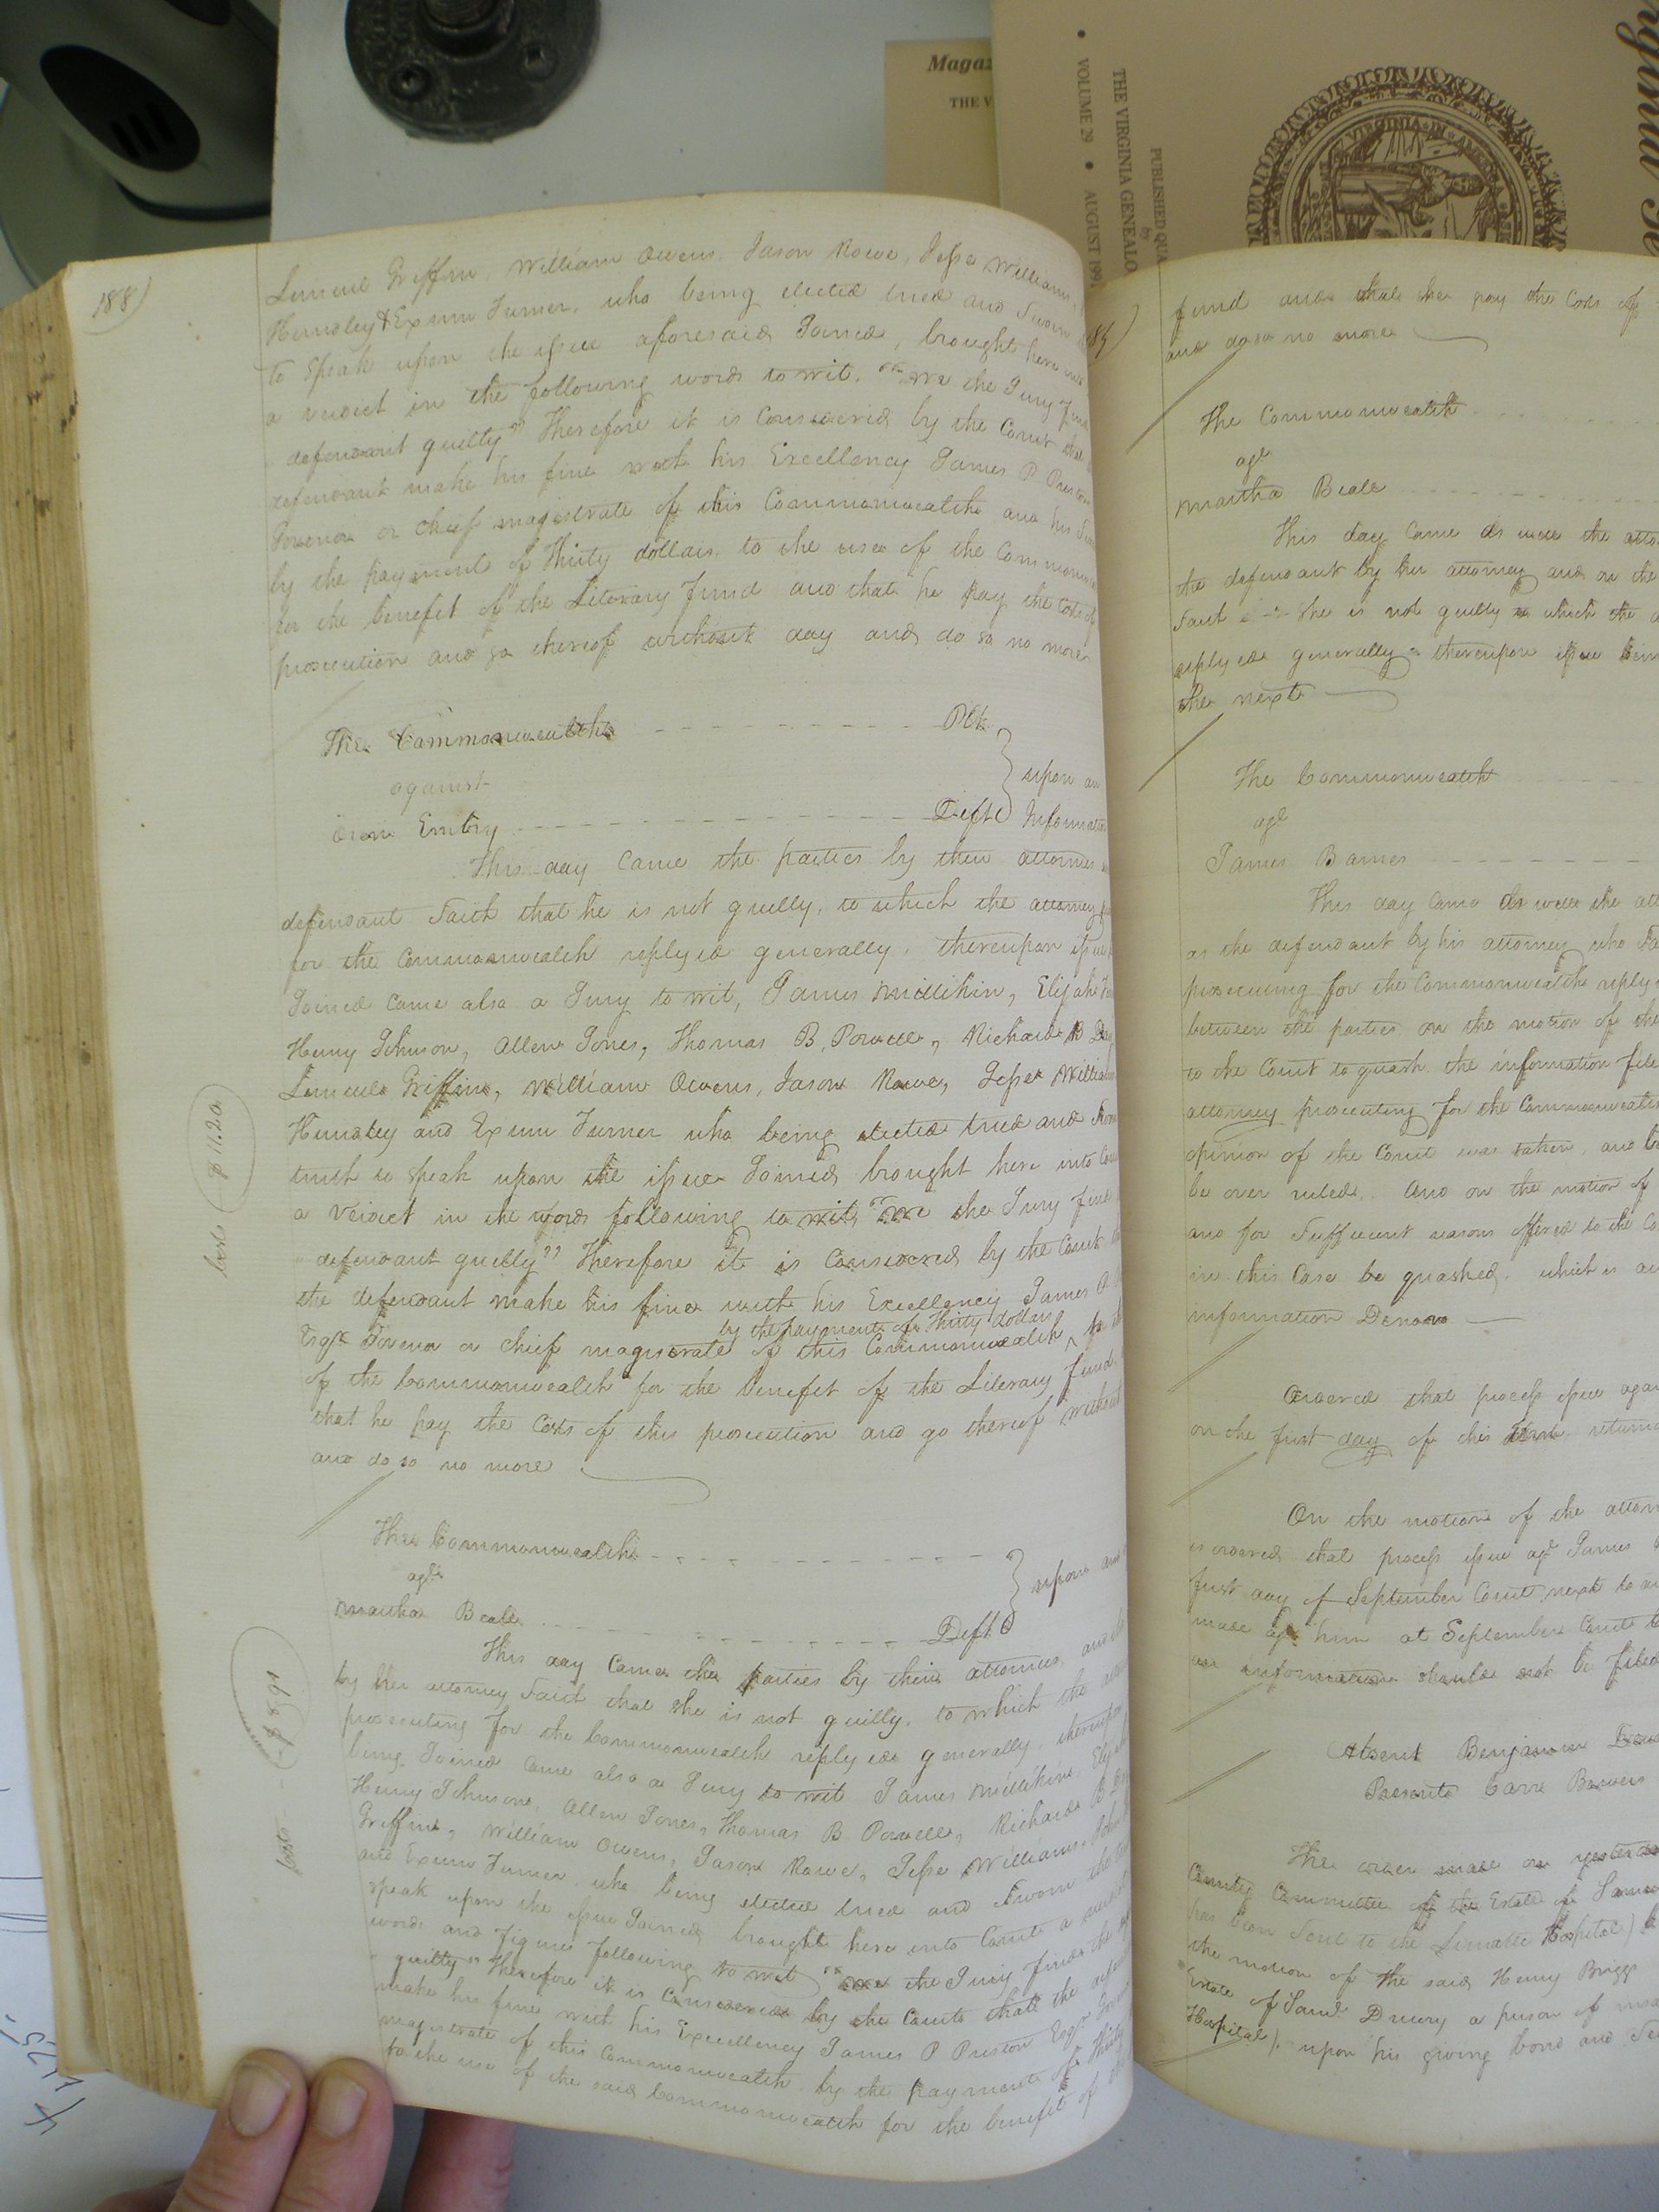 Magaz
THE V
VOLUME 29 • AUGUST 199
THE VIRGINIA GENEALO
PUBLISHED QUA
by
188)
Lemuel Griffin, William Owens, Jason Rowe, Jesse William
Hundley & Exum Turner, who being elected tried and Sworn
to Speak upon the issue aforesaid Joined, brought here into
a verdict in the following words to wit, "We the Jury find
defendant guilty" Therefore it is Considered by the Court that
defendant make his fine with his Excellency James P Preston
Governor or chief magistrate of this Commonwealth and his
by the payment of Thirty dollars, to the use of the Commonw
for the benefit of the Literary fund and that he pay the Costs of
prosecution and go thereof without day and do so no more
The Commonwealth Plt
against
Embry Deft
upon an
Information
This day Came the parties by their attornies
defendant Saith that he is not guilty, to which the attorney
for the Commonwealth replyed generally, thereupon issue
Joined Came also a Jury to wit, James Millikin, Elijah
Henry Johnson, Allen Jones, Thomas B. Powell, Richard B
Lemuel Griffin, William Owens, Jason Rowe, Jesse William
Hundley and Exum Turner who being elected tried and
truth to Speak upon the issue Joined, brought here into Cou
a Verdict in the words following to wit, "We the Jury find
defendant guilty" Therefore it is Considered by the Court
the defendant make his fine with his Excellency James P
by the payment of Thirty dollars
Esqr. Governor or chief magistrate of this Commonwealth ^ to
of the Commonwealth for the benefit of the Literary fund.
that he pay the Costs of this prosecution and go thereof without
and do so no more
Costs $11.20
The Commonwealth
agt.
Martha Beale Deft
upon an
This day Came the parties by their attornies, and
by her attorney Saith that she is not guilty, to which the
prosecuting for the Commonwealth replyed generally, thereupon
being Joined Came also a Jury to wit James Millikin, Elijah
Henry Johnson, Allen Jones, Thomas B. Powell, Richard B
Griffin, William Owens, Jason Rowe, Jesse Williams,
and Exum Turner, who being elected tried and Sworn the
speak upon the issue Joined, brought here into Court a verdict
words and figures following to wit, "We the Jury find the
guilty" Therefore it is Considered by the Court that the
make his fine with his Excellency James P Preston Esqr. Govern
magistrate of this Commonwealth by the payment of Thirty
to the use of the said Commonwealth for the benefit of
Costs $8.91
fund and that she pay the Costs of
and do so no more
The Commonwealth
agt
Martha Beale
This day Came as well the attor
the defendant by her attorney and on the
Saith she is not guilty to which the a
replyed generally thereupon issue bein
the next
The Commonwealth
agt
James Barnes
This day Came as well the att
as the defendant by his attorney who Sa
prosecuting for the Commonwealth reply
between the parties on the motion of the
to the Court to quash the information file
attorney prosecuting for the Commonwealth
opinion of the Court was taken, and
be over ruled. And on the motion of
and for Sufficient reasons offered to the Co
in this Case be quashed, which is
information
Ordered that process issue agai
on the first day of this term return
On the motion of the attor
is ordered that process issue agt James
first day of September Court next to
made agt him at September Court
an information should not be filed
Absent Benjamin
Present Carr Bowers
The order made on yesterda
County Committee of the Estate of Samue
has been Sent to the Lunatic Hospital)
the motion of the said Henry Briggs
Estate of Saml. Drury a person of
Hospital), upon his giving bond and Se